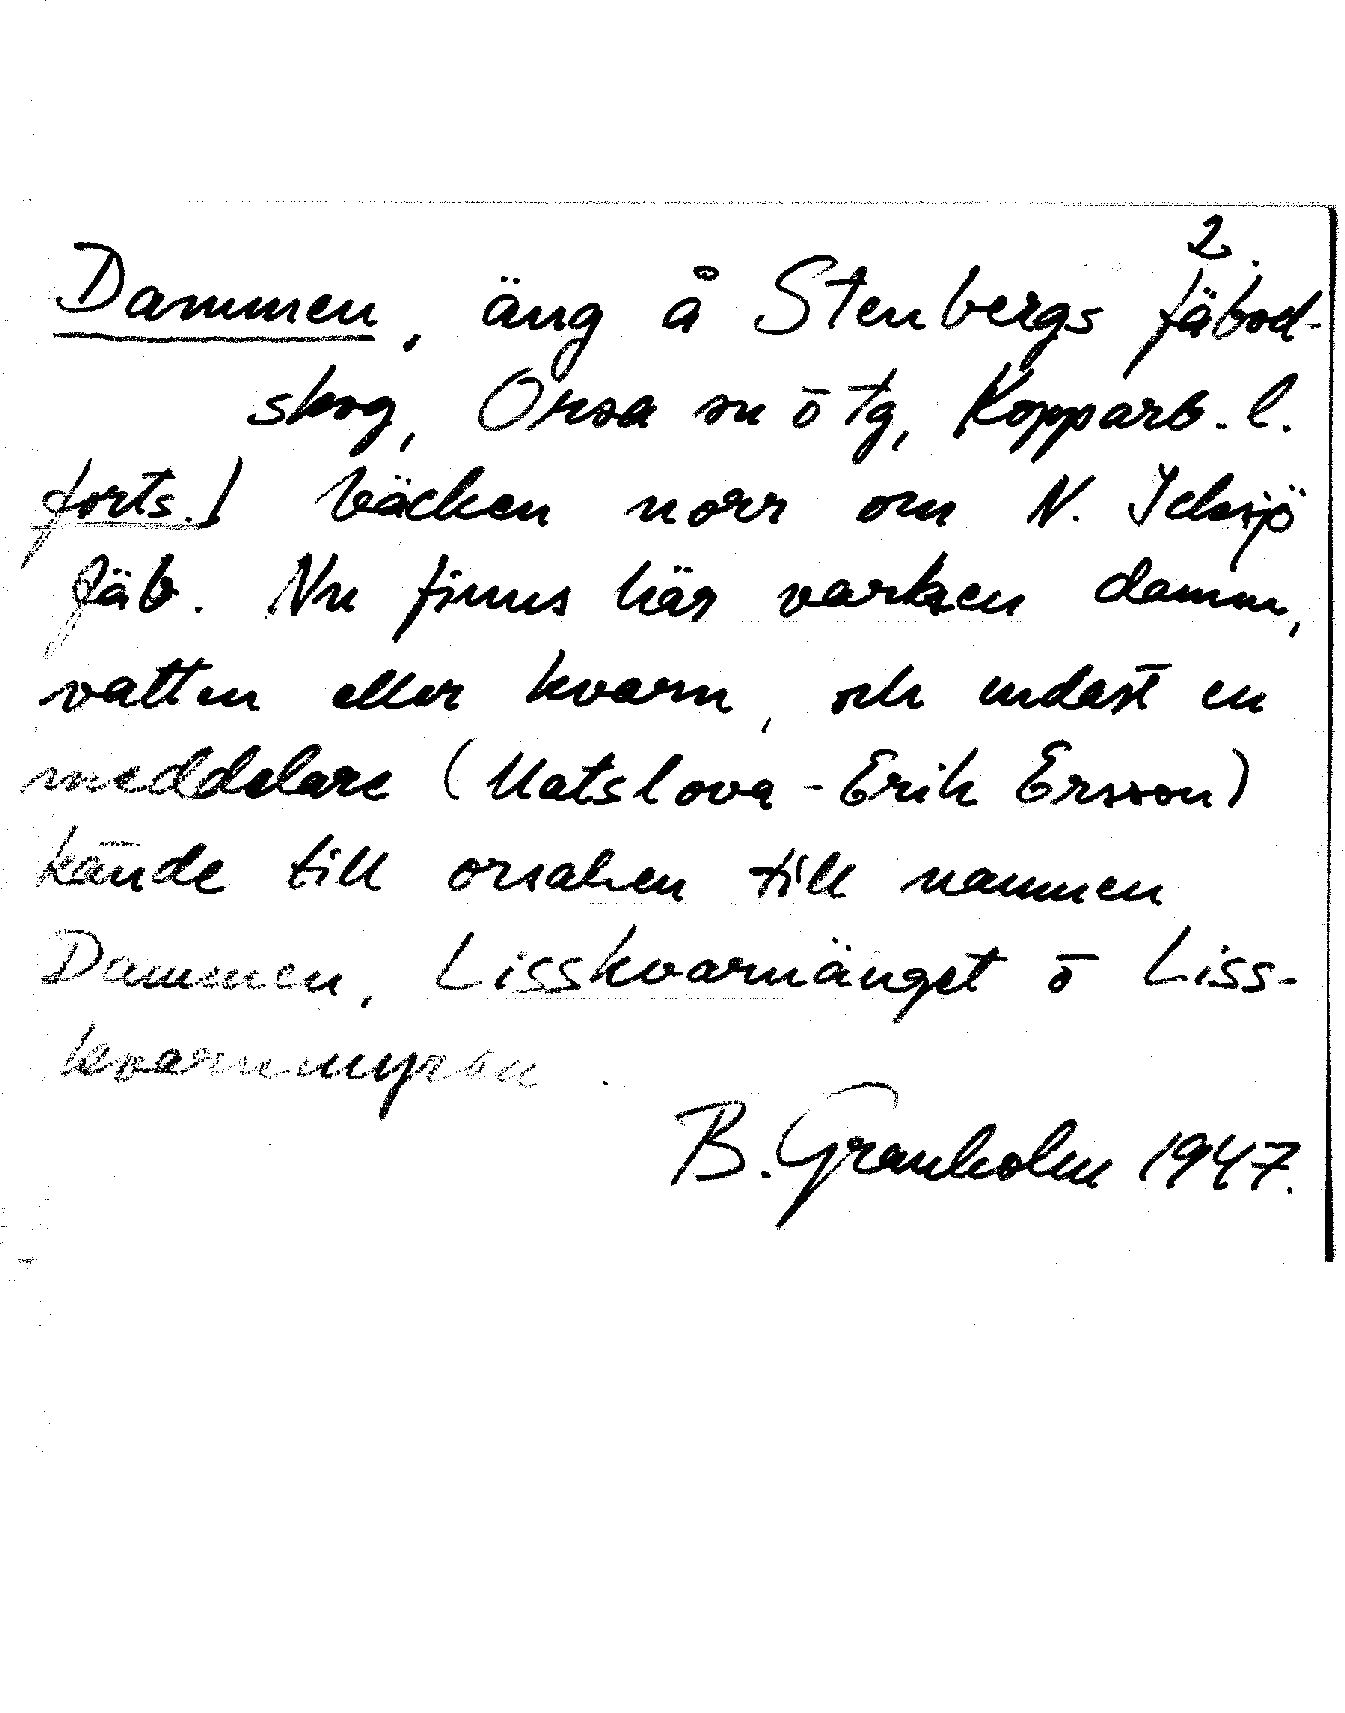 2.
Dammen, äng å Stenbergs fäbod-
skog, Orsa sn ō tg, Kopparb. l.
forts.) bäcken norr om N. Icksjö
fäb. Nu finns här varken damm,
vatten eller kvarn, och endast en
meddelare (Matslova-Erik Ersson)
kände till orsaken till namnen
Dammen, Lisskvarnänget ō Liss-
kvarnmyran.
B. Granholm 1947.